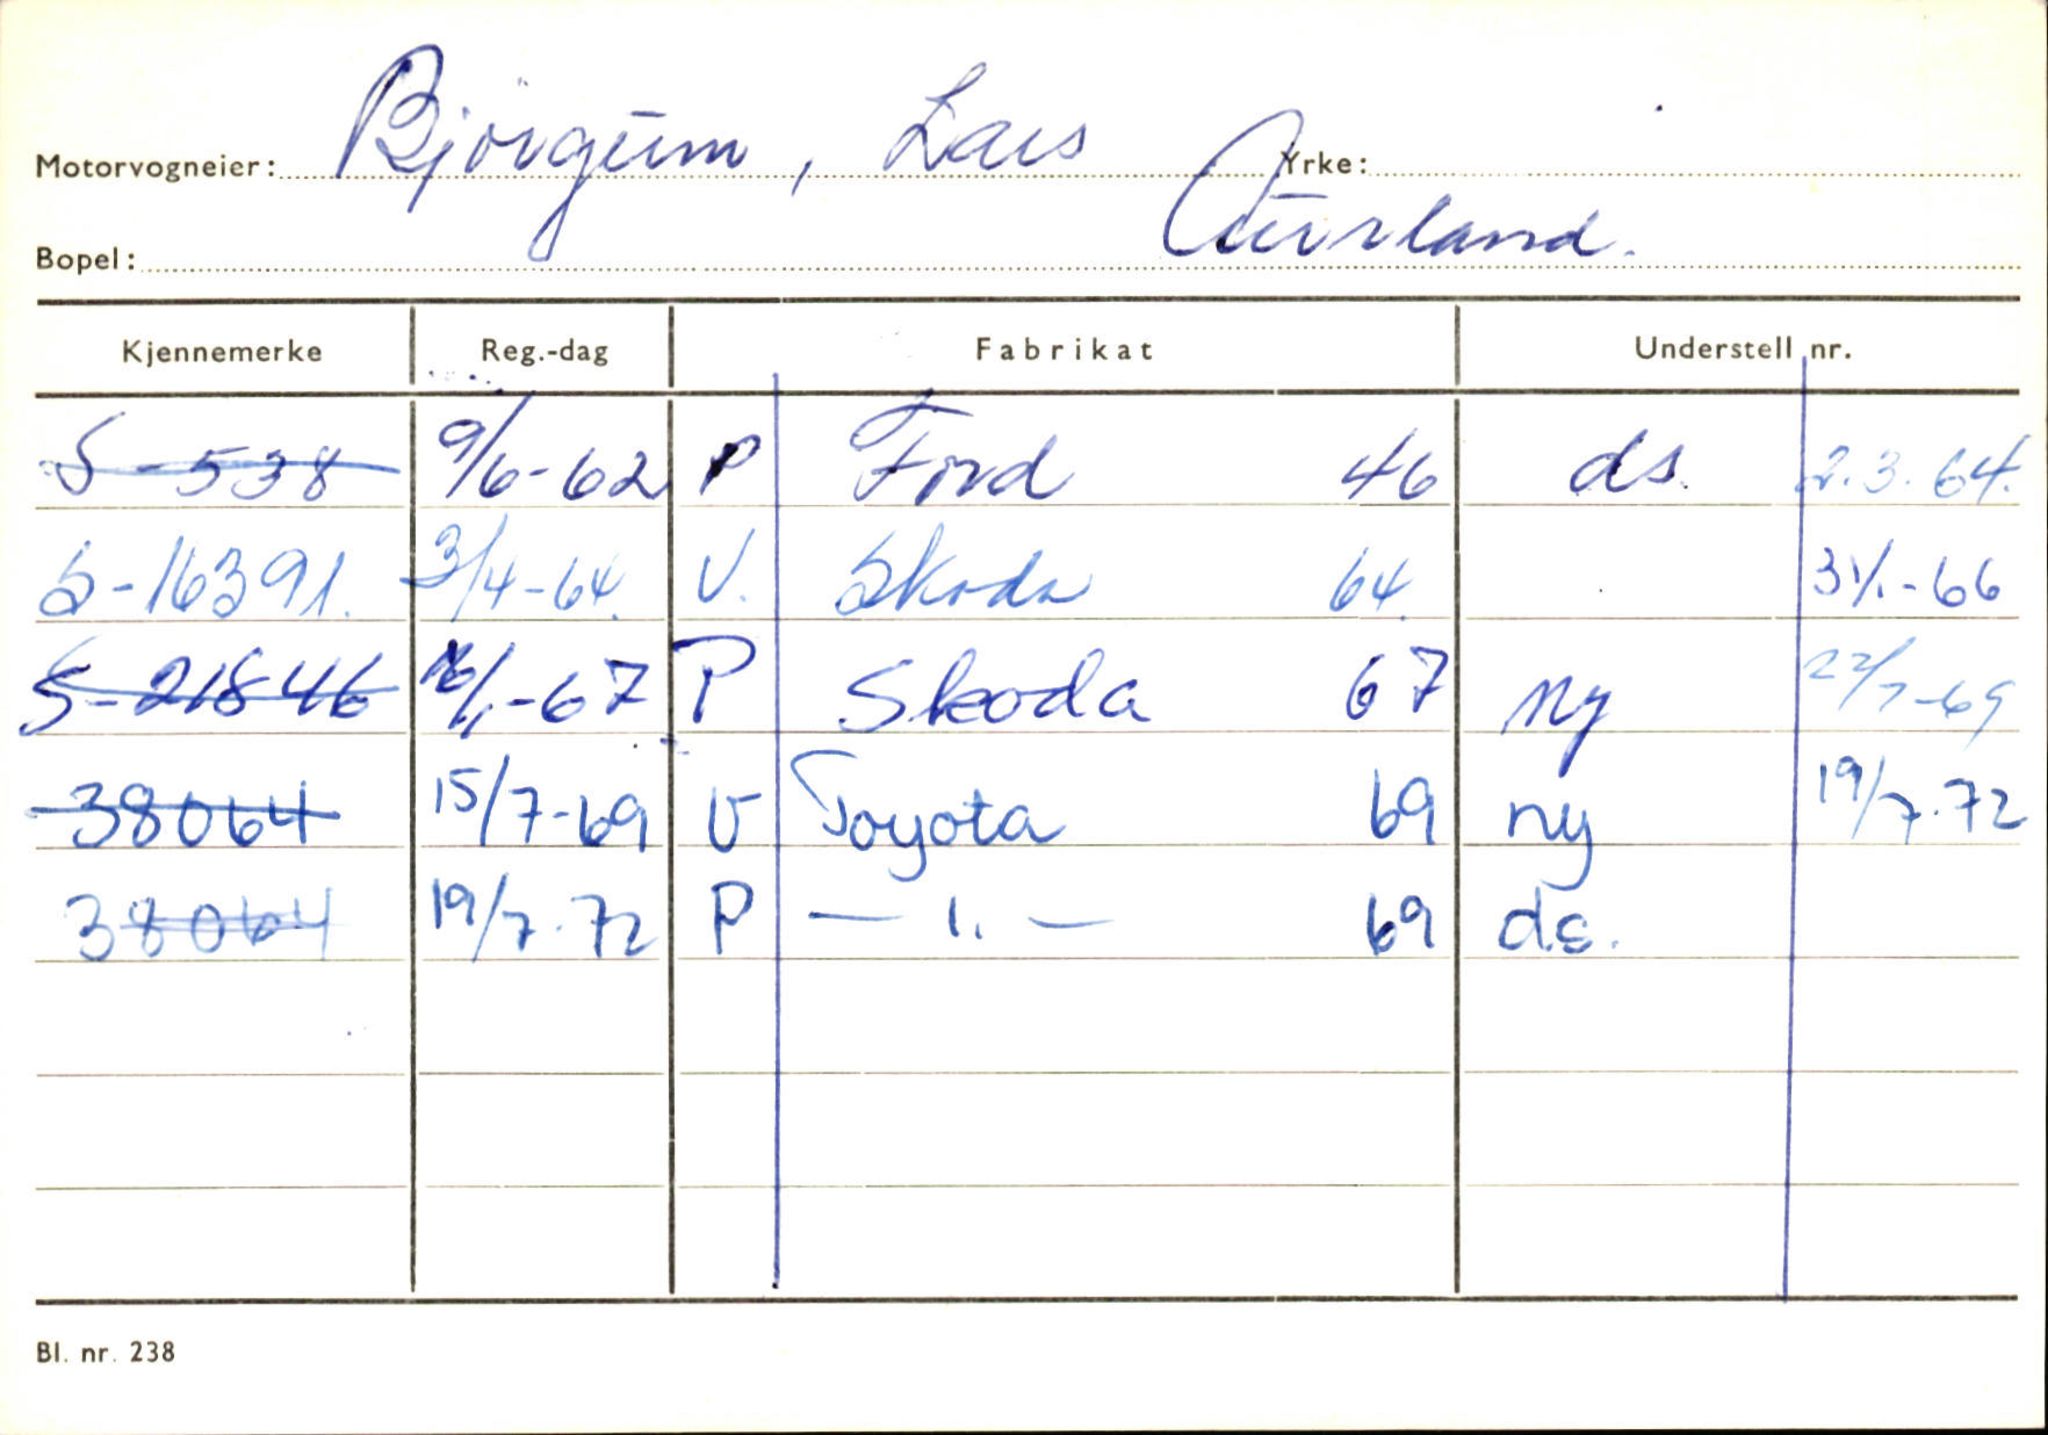 Motorvogneier: Bjørgum, Lars Yrke:
Bopel: Aurland.
Kjennemerke Reg.-dag Fabrikat Understell nr.
S-538 9/6-62 P Ford 46 ds. 2.3.64.
S-16391. 3/4-64. V. Skoda 64. 31/1-66
S-21846 16/1-67 P Skoda 67 ny 22/7-69
38064 15/7-69 V Toyota 69 ny 19/7.72
38064 19/7.72 P — 1. — 69 ds.
Bl. nr. 238